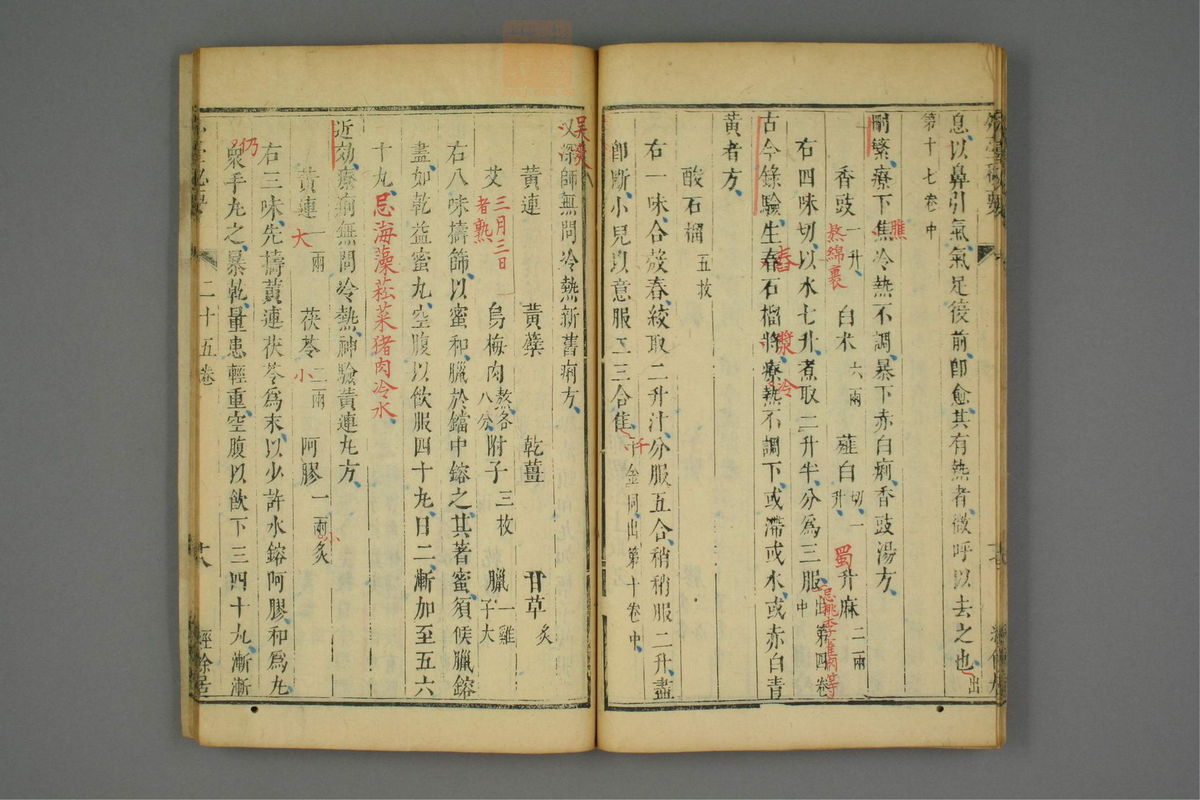 息以鼻引氣氣足後前即愈其有熱者微呼以去之也出
第十七卷中
刪繁療下焦冷熱不調暴下赤白痢香豉湯方
膲
香豉一升 白术六兩 薤白切一升 升麻二兩
熬綿裹
蜀
右四味切以水七升煮取二升半分爲三服出第四卷中
忌桃李雀肉等
古今錄驗生舂石榴將療熱不調下或滯或水或赤白青
春
漿冷
黃者方
酸石榴五枚
右一味合殼舂絞取二升汁分服五合稍稍服二升盡
即斷小兒以意服二三合隹千金同出第十卷中
千
又深師無問冷熱新舊痢方
黃連 黃蘗 乾薑 甘草炙
艾 烏梅肉熬各八分 附子三枚 臘一雞子大
三月三日者熟
右八味擣篩以蜜和臘於鐺中鎔之其著蜜須候臘鎔
盡如乾益蜜丸空腹以飲服四十丸日二漸加至五六
十丸
忌海藻菘菜猪肉冷水
近効療痢無問冷熱神驗黃連丸方
黃連一兩 茯苓二兩 阿膠一兩炙
大
小
小
右三味先擣黃連茯苓爲末以少許水鎔阿膠和爲丸
衆手丸之暴乾量患輕重空腹以飲下三四十丸漸漸
仍
二十五卷
經餘居